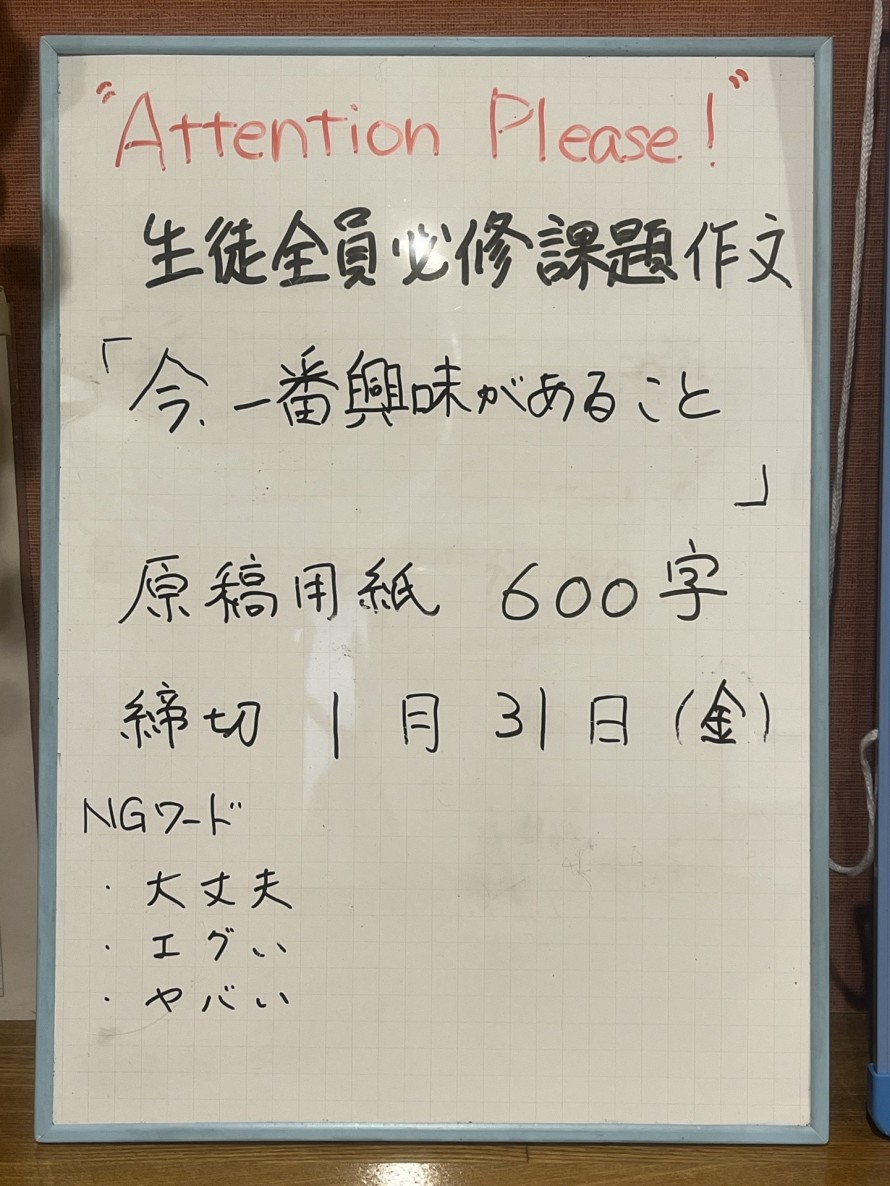 "Attention Please!"
生徒全員必修課題作文
「今、一番興味があること
」
原稿用紙 600字
締切 1月31日(金)
NGワード
・大丈夫
・エグい
・ヤバい